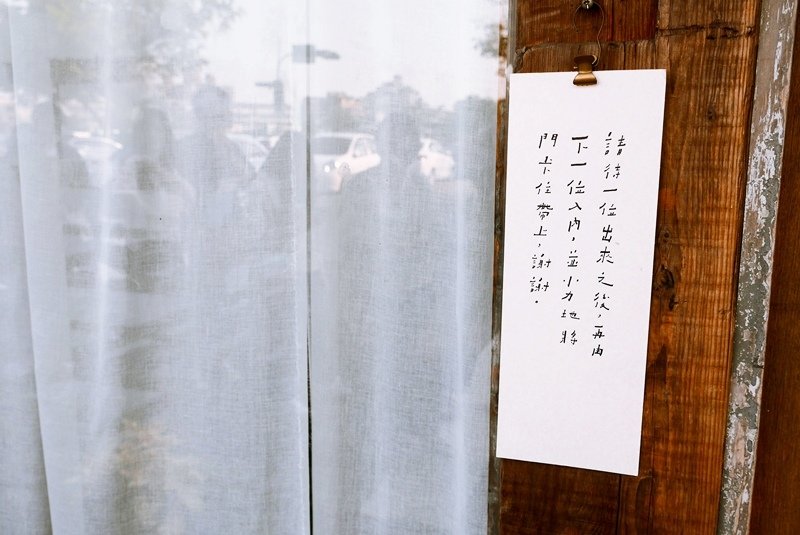 請待一位出來之後，再由
下一位入內，並小力地將
門卡住帶上，謝謝。